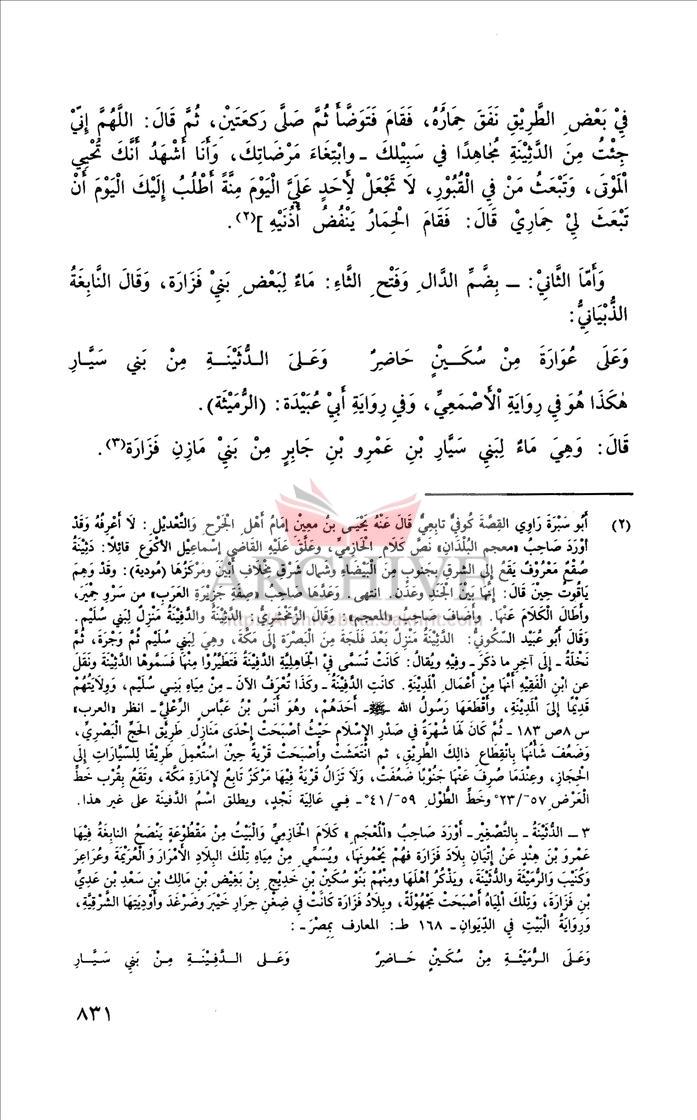 فِيْ بَعْضِ الطَّرِيْقِ نَفَقَ حِمَارُهُ، فَقَامَ فَتَوَضَّأَ ثُمَّ صَلَّى رَكعَتَيْنِ، ثُمَّ قَالَ: اللَّهُمَّ إِنِّيْ
جِئْتُ مِنَ الدَّثِيْنَةِ مُجَاهِدًا في سَبِيْلكَ ـ وابْتِغَاءَ مَرْضَاتِكَ، وَأَنَا أَشْهَدُ أَنَّكَ تُحْيِي
الْمَوْتَى، وَتَبْعَثُ مَنْ في الْقُبُوْرِ، لَا تَجْعَلْ لِأَحَدٍ عَلَيَّ الْيَوْمَ مِنَّةً أَطْلُبُ إِلَيْكَ الْيَوْمَ أَنْ
تَبْعَثَ لِيْ حِمَارِيْ قَالَ: فَقَامَ الْحِمَارُ يَنْفُضُ أُذُنَيْهِ](٢).
وَأَمَّا الثَّانِيْ: ـ بِضَّمِّ الدَّالِ وَفَتْحِ الثَّاءِ: مَاءٌ لِبَعْضِ بَنِيْ فَزَارَة، وَقَالَ النَّابِغَةُ
الذُّبْيَانِيُّ:
وَعَلَى عُوَارَةَ مِنْ سُكَــيْنٍ حَاضِرٌ    وَعَـلىَ الـدُّثَيْنَــةِ مِنْ بَني سَيَّــارِ
هٰكَذَا هُوَ في رِوَايَةِ الْأَصْمَعِيِّ، وَفيِ رِوَايَةِ أَبِيْ عُبَيْدَة: (الرُّمَيْثَة).
قَالَ: وَهِيَ مَاءٌ لِبَنيِ سَيَّارِ بْنِ عَمْرِو بْنِ جَابِرٍ مِنْ بَنِيْ مَازِنِ فَزَارَة(٣).
(٢) أَبُو سَبْرَةَ رَاوِي القِصَّة كُوفيٌّ تابِعيٌّ قَالَ عَنْهُ يَحْيَـى بنُ معِين إمَامُ أَهْلِ الجَرْحِ والتَّعْدِيْلِ: لَا أَعْرِفُهُ وَقَدْ
أوْرَدَ صَاحِبُ «معجم الْبُلْدَانِ» نَصَّ كَلَامِ الْحَازِمِيِّ، وعَلَّقَ عَلَيْهِ القَاضِي إِسْمَاعِيل الأَكْوَع قائلًا: دَثِيْنَةُ
صُقْعٌ مَعْرُوفٌ يَقَعُ إلى الشَّرْقِ بِجَنوبٍ مِنَ الْبَيْضَاءِ وشَمال شَرْقِ مِخْلافِ أَبْيَنَ وَمَرْكَزُهَا (مُودِيَة): وَقَدْ وَهِمَ
يَاقُوتٌ حِينَ قَالَ: إِنَّهَا بَيْنَ الْجَنَدِ وَعَدَنَ. انتهى. وَعَدَّهَا صاحِبُ «صِفَةِ جَزِيْرَةِ الْعَرَبِ» من سَرْوِ حِمْيَرَ،
وأَطَالَ الْكَلَامَ عَنْهَا. وأَضَافَ صَاحِبُ «المعجمِ»: وَقَالَ الزَّمَخْشَرِيُّ: الدَّثِيْنَةُ والدَّفِيْنَةُ مَنْزِلٌ لِبَنِي سُلَيم.
وَقَالَ أَبُو عُبَيْد السَّكُونيُّ: الدَّثِيْنَةُ مَنْزِلٌ بَعْدَ فَلَجَةَ مِنَ الْبَصْرَةِ إلى مَكَّةَ، وهِيَ لِبَنِي سُلَيْمٍ ثُمَّ وَجْرَةَ، ثُمَّ
نَخْلَةَ ـ إِلَى آخِرِ ما ذكَرَ ـ وفيه وَيُقَالُ: كَانَتْ تُسَمَّى في الْجَاهِلِيَّةِ الدَّفِيْنَةَ فَتَطَيَّرُوْا مِنْهَا فَسَمُّوهَا الدَّثِيْنَةَ ونَقَلَ
عن ابْنِ الفَقِيْهِ أَنَّهَا مِنْ أَعْمَالِ الْمَدِيْنَةِ. كانَتِ الدَّفِيْنَةُ ـ وكَذَا تُعْرَفُ الآنَ ـ مِنْ مِيَاهِ بَنِي سُلَيْم، وَوِلَايَتُهُمْ
قَدِيْمًا إِلَى الْمَدِيْنَةِ، وأَقْطَعَهَا رَسُوْلُ الله ﷺ أَحَدَهُمْ، وهُوَ أَنَسُ بْنُ عَبَّاسٍ الرِّعْلِيُّ ـ انظر «العرب»
س ٨ص ١٨٣ ـ ثُمَّ كَانَ لَهَا شُهْرَةٌ في صَدْرِ الإِسْلَامِ حَيْثُ أَصْبَحَتْ إِحْدَى مَنَازِلِ طَرِيْقِ الحَجِّ الْبَصْرِيِّ،
وَضَعُفَ شَأْنُهَا بِانْقِطاعِ ذَالِكَ الطَّرِيْقِ، ثم انْتَعَشَتْ وأَصْبَحَتْ قَرْيَةً حِيْنَ اسْتُعْمِلَ طَرِيْقًا لِلسَّيَّارَاتِ إِلَى
الْحِجَازِ، وَعِنْدَمَا صُرِفَ عَنْهَا جَنُوبًا ضَعُفَتْ، وَلَا تَزَالُ قَرْيَةً فِيْهَا مَرْكَزٌ تَابِعٌ لِإمَارَةِ مَكَّة، وتَقَعُ بِقُرْبِ خَطِّ
الْعَرْضِ ٥٧َ/٢٣° وخَطِّ الطُّوْلِ ٥٩َ/٤١° ـ فـي عَالِيَةِ نَجْدٍ، ويطلق اسْمُ الدَّفِينَة على غير هذا.
٣ ـ الدُّثَيْنَةُ ـ بِالتَّصْغِيْرِ ـ أوْرَدَ صَاحِبُ «الْمُعْجَمِ» كَلَامَ الْحَازِمِيِّ وَالْبَيْتُ مِنْ مَقْطُوْعَةٍ يَنْصَحُ النابِغَةُ فِيْهَا
عَمْرَو بْنَ هِنْدٍ عَنْ إِتْيَانِ بِلَادِ فَزَارَة فَهُمْ يَحْمُونَهَا، ويُسَمِّي مِنْ مِيَاهِ تِلْكَ الْبِلَادِ الْأَمْرَارَ وَالْعُرَيْمَةَ وعُرَاعِرَ
وكُنَيْب وَالرُّمَيْثَةَ والدُّثَيْنَةَ، ويَذْكُرُ أَهْلَهَا ومِنْهُمْ بَنُوْ سُكَيْنِ بْنِ خَدِيْجِ بِنْ بَغِيْضِ بْنِ مَالِكِ بْنِ سَعْدِ بْنِ عَدِيِّ
بْنِ فَزَارَة، وَتِلْكَ الْمِيَاهُ أَصْبَحَتْ مَجْهُوْلَةً، وبِلَادُ فَزَارَة كَانَتْ في ضِغْنِ حِرَارِ خَيْبَرَ وضَرْغَدَ وأَوْدِيَتِهَا الشَّرْقِيَّةِ،
وَرِوَايَةُ الْبَيْتِ في الدِّيْوَانِ ـ ١٦٨ ط: المعارف بِمِصْرَ ـ:
وَعَلَى الـرُّمَيْثَـةِ مِنْ سُكَـيْنٍ حَـاضِرٌ    وَعَـلى الـدَّفِيْنَـةِ مِـنْ بَنِي سَيَّـارِ
٨٣١
ARCHIVE